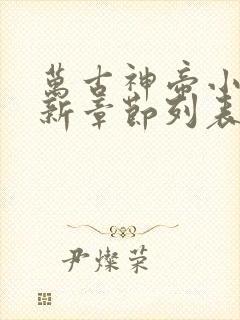 萬古神帝小
新章節列表
尹燦荣